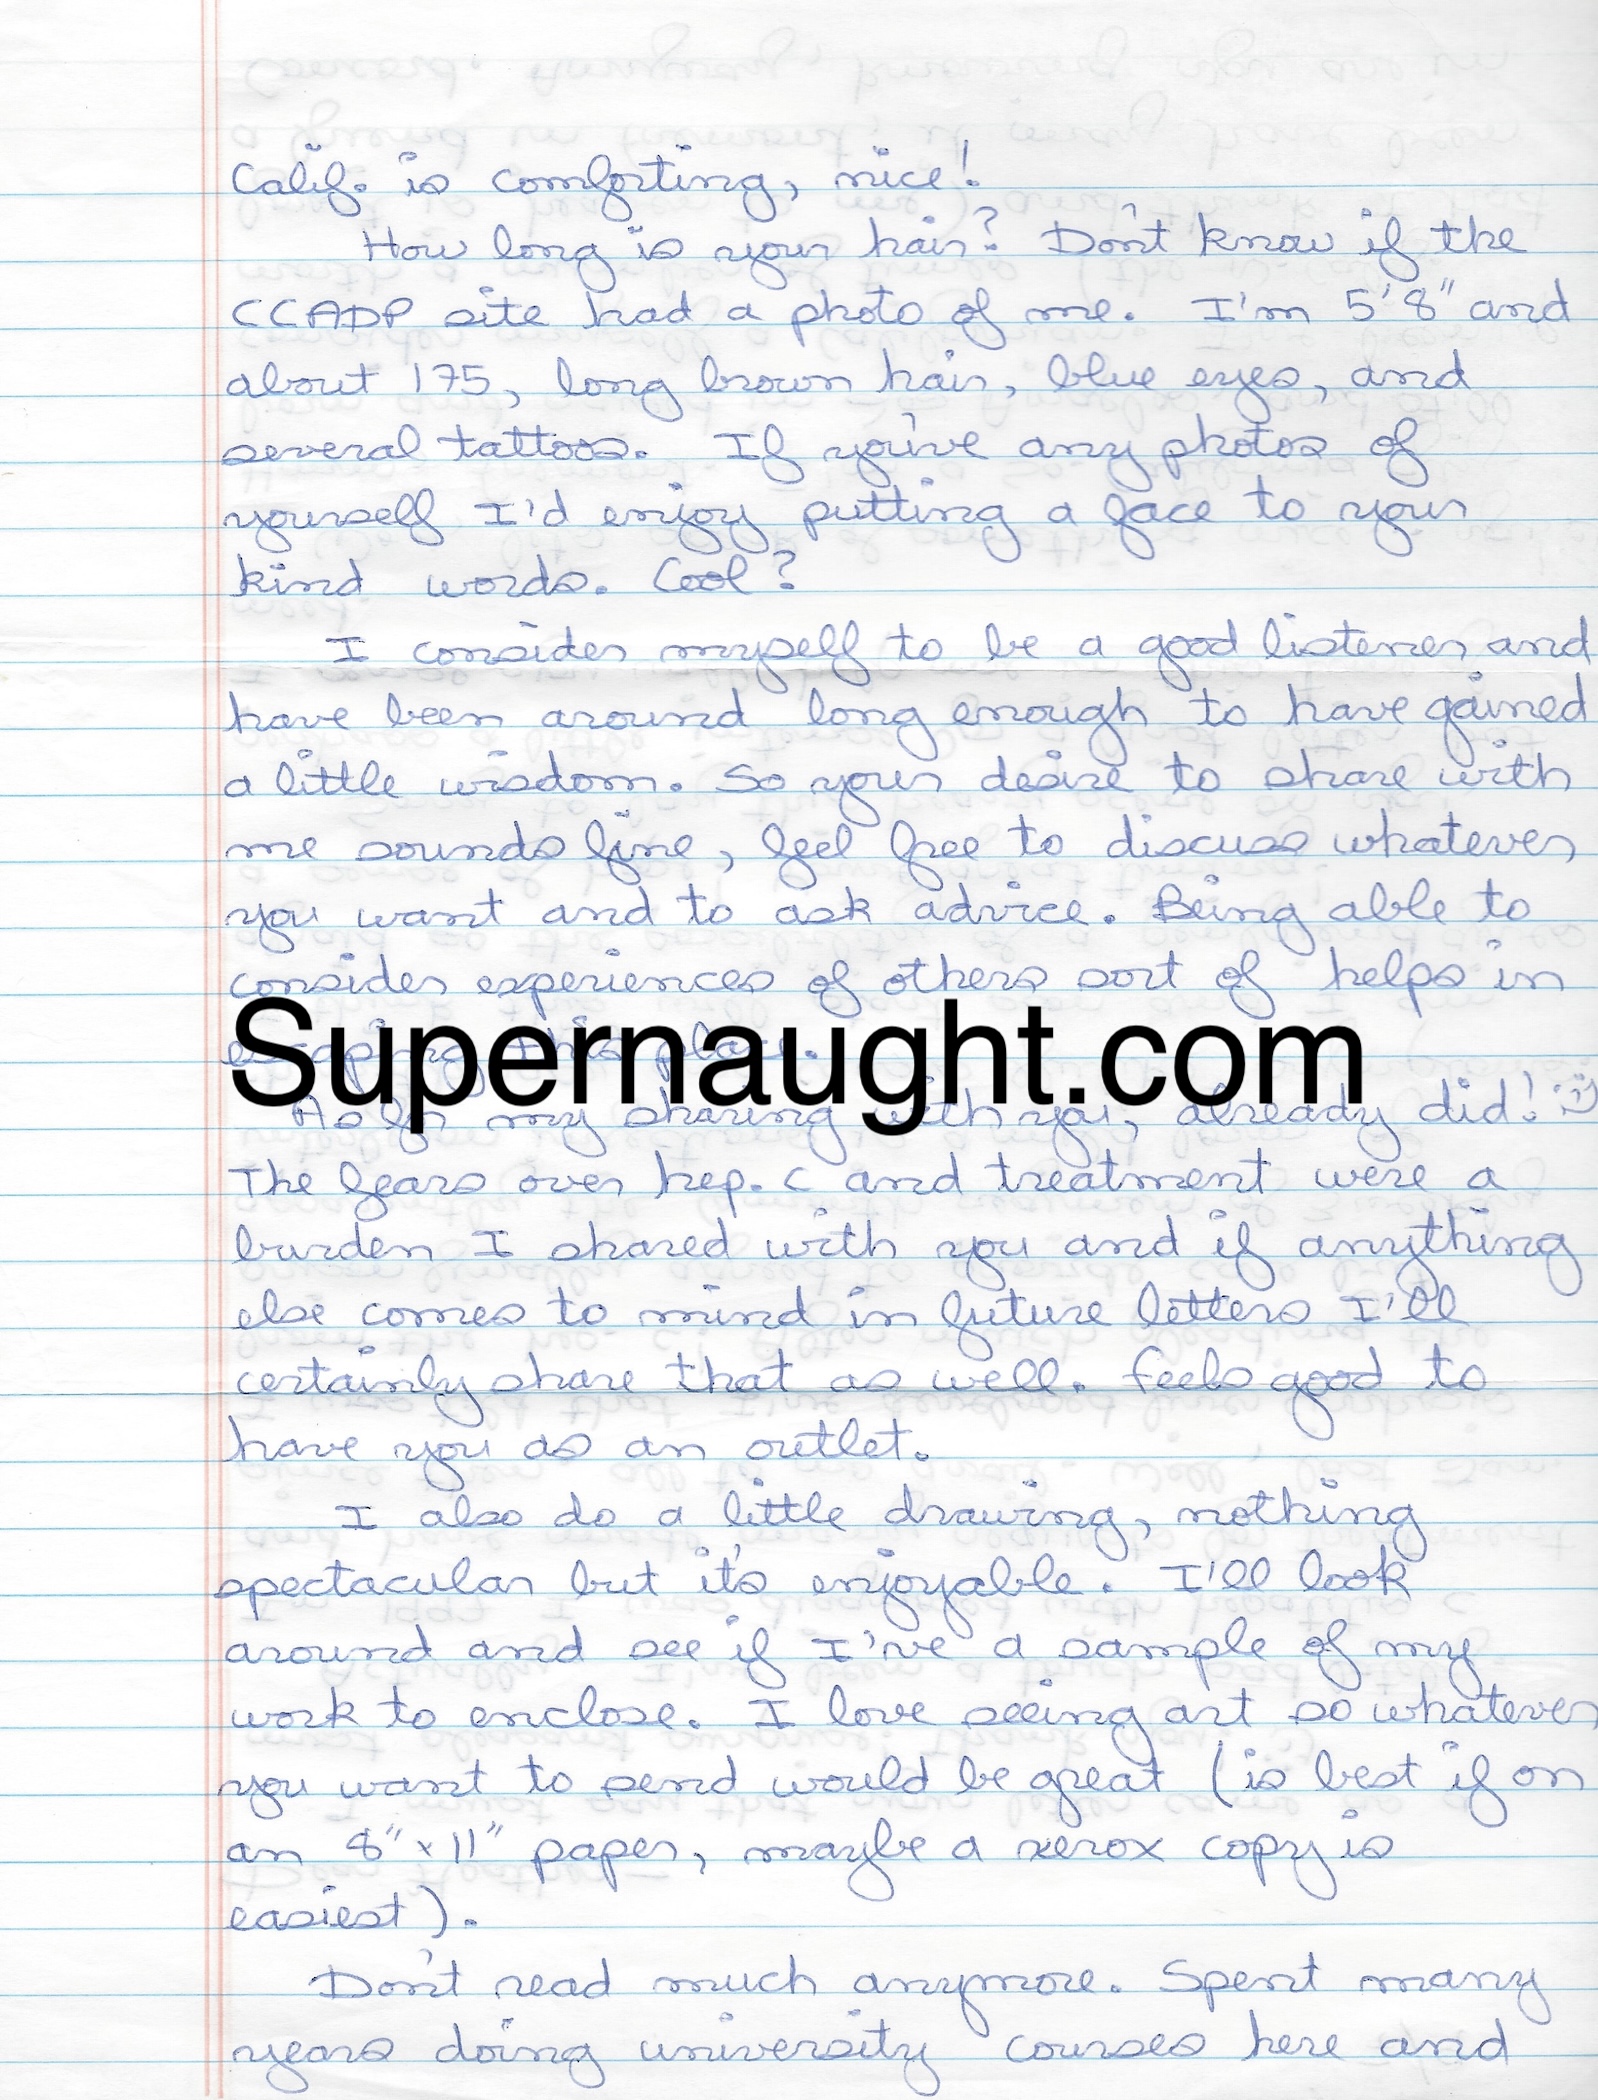 Calif. is comforting, nice!
How long is your hair? Don't know if the
CCADP site had a photo of me. I'm 5'8" and
about 175, long brown hair, blue eyes, and
several tattoos. If you've any photos of
yourself I'd enjoy putting a face to your
kind words. Cool?
I consider myself to be a good listener and
have been around long enough to have gained
a little wisdom. So your desire to share with
me sounds fine, feel free to discuss whatever
you want and to ask advice. Being able to
consider experiences of others sort of helps in
escaping this place.
Supernaught.com
As for my sharing with you, already did! :)
The fears over hep. C and treatment were a
burden I shared with you and if anything
else comes to mind in future letters I'll
certainly share that as well. Feels good to
have you as an outlet.
I also do a little drawing, nothing
spectacular but it's enjoyable. I'll look
around and see if I've a sample of my
work to enclose. I love seeing art so whatever
you want to send would be great (is best if on
an 8"x11" paper, maybe a xerox copy is
easiest).
Don't read much anymore. Spent many
years doing university courses here and